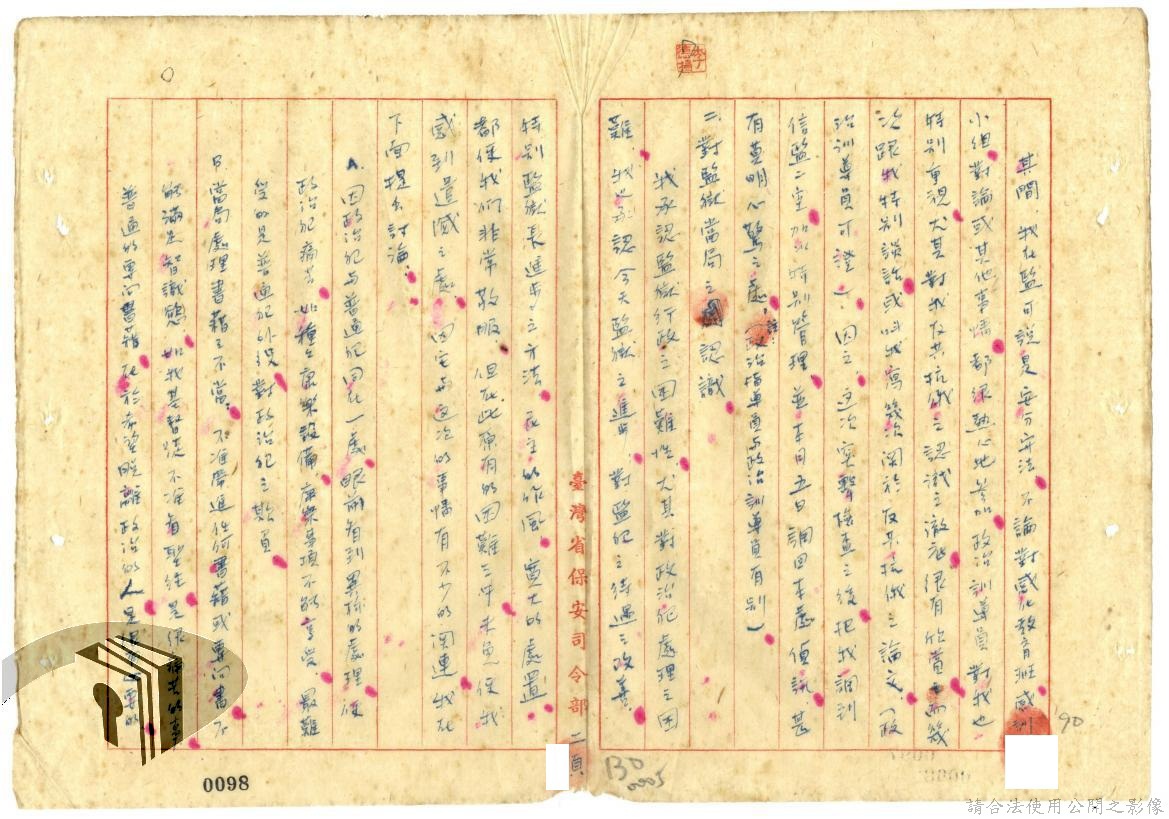 其間 我在監可說是安分守法 不論對感化教育班感訓
小組對論或其他事情都很熱心地參加 政治訓導員對我也
特別重視尤其對我反共抗俄之認識之澈底很有欣賞 而幾
次跟我特別談話或叫我寫幾次関於反共抗俄之論文（政
治訓導員可證）因之 這次突擊檢查之後 把我調到
信監二室加以特別管理 並本月五日調回本處偵訊 甚
有莫明心驚之處（註 政治指導員與政治訓導員有別）
二、對監獄當局之認識
我承認監獄行政之困難性 尤其對政治犯處理之困
難 我也承認今天監獄之進步 對監犯之待遇之改善
特別監獄長進步之方法 民主的作風 寬大的處置
都使我們非常敬服 但在此原有的困難之中未免使我
感到遺憾之處 因它與這次的事情有不少的関連 我在
下面提出討論
A. 因政治犯與普通犯同在一處 眼前看到異樣的處理使
政治犯痛苦 如種々康樂設備 康樂事項不能享受 最難
受的是普通犯外役對政治犯之欺負
B. 當局處理書籍之不當 不准帶進任何書籍或專門書不
能滿足智識慾 如我基督徒不准看聖經是很痛苦的事
普通的專門書籍 在於希望脫離政治的人是很需要的
臺灣省保安司令部
二頁
0098
130
0005
90
請合法使用公開之影像